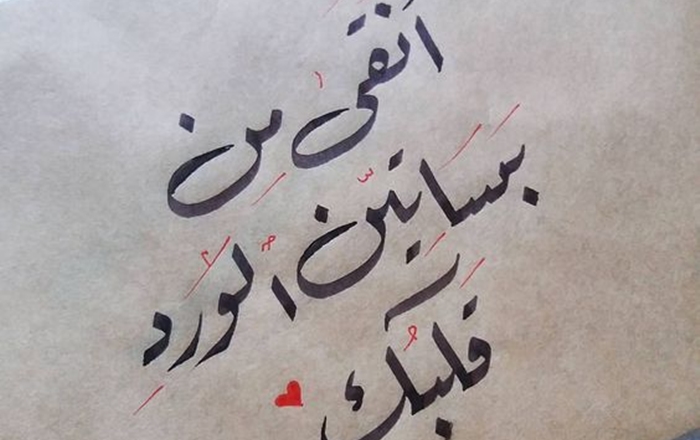 أنقى من
بساتين الورد
قلبك